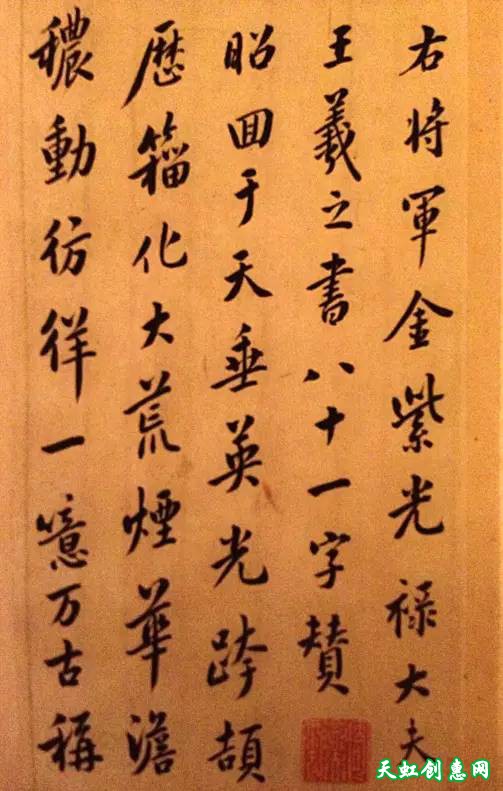 右將軍金紫光祿大夫
王羲之書八十一字賛
昭囬于天垂英光跨頡
歷籀化大荒煙華澹
穠動彷徉一噫万古稱
天虹创惠网